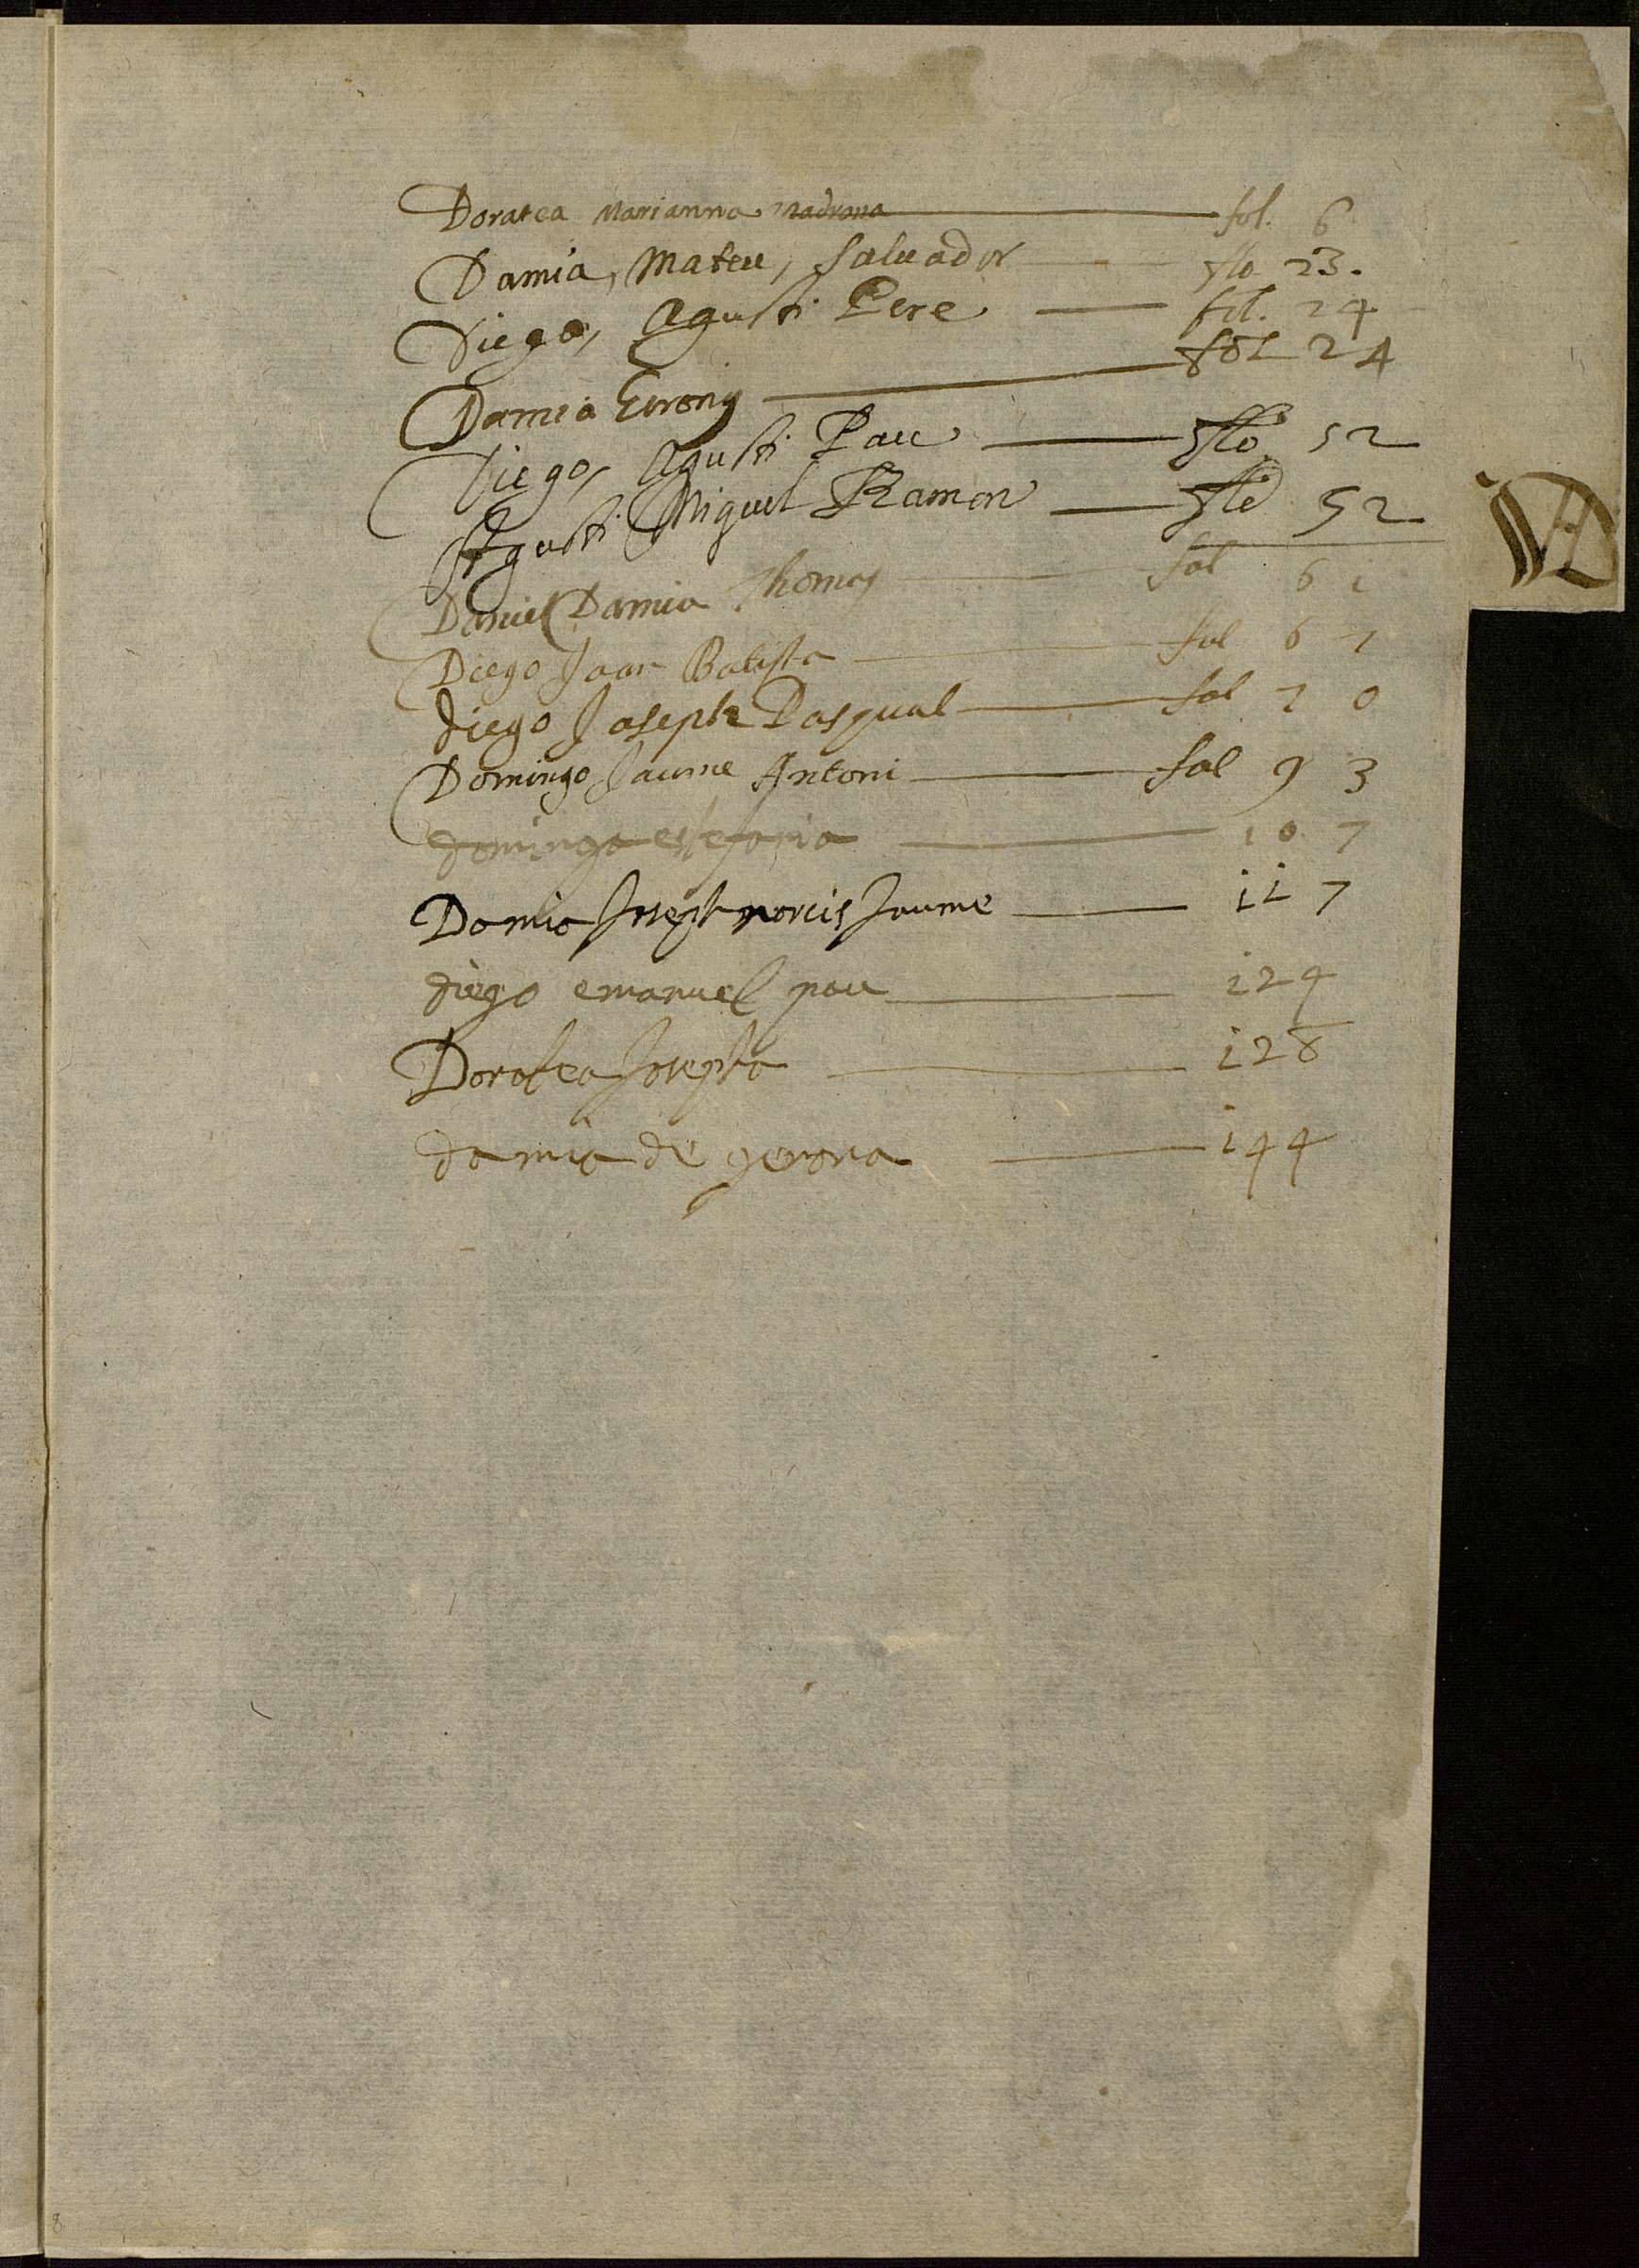 Doratea Marianna Madrona fol. 6
Damia, Mateu, Saluador flo 23.
Diego, Agusti Pere fol. 24
Damia Gironȳ fol 24
Diego, Agusti Pau flo 52
Agusti Miguel Ramon flo 52
D
Daniel Damia Thomas fol 6i
Diego Joan Batista fol 67
diego Joseph Pasqual fol 70
Domingo Jaume Antoni fol 93
domingo estefania 107
Damia Joseph narcis Jaume ii7
diego emanuel pau i24
Doratea Josepha i28
damia de gerona i44
8